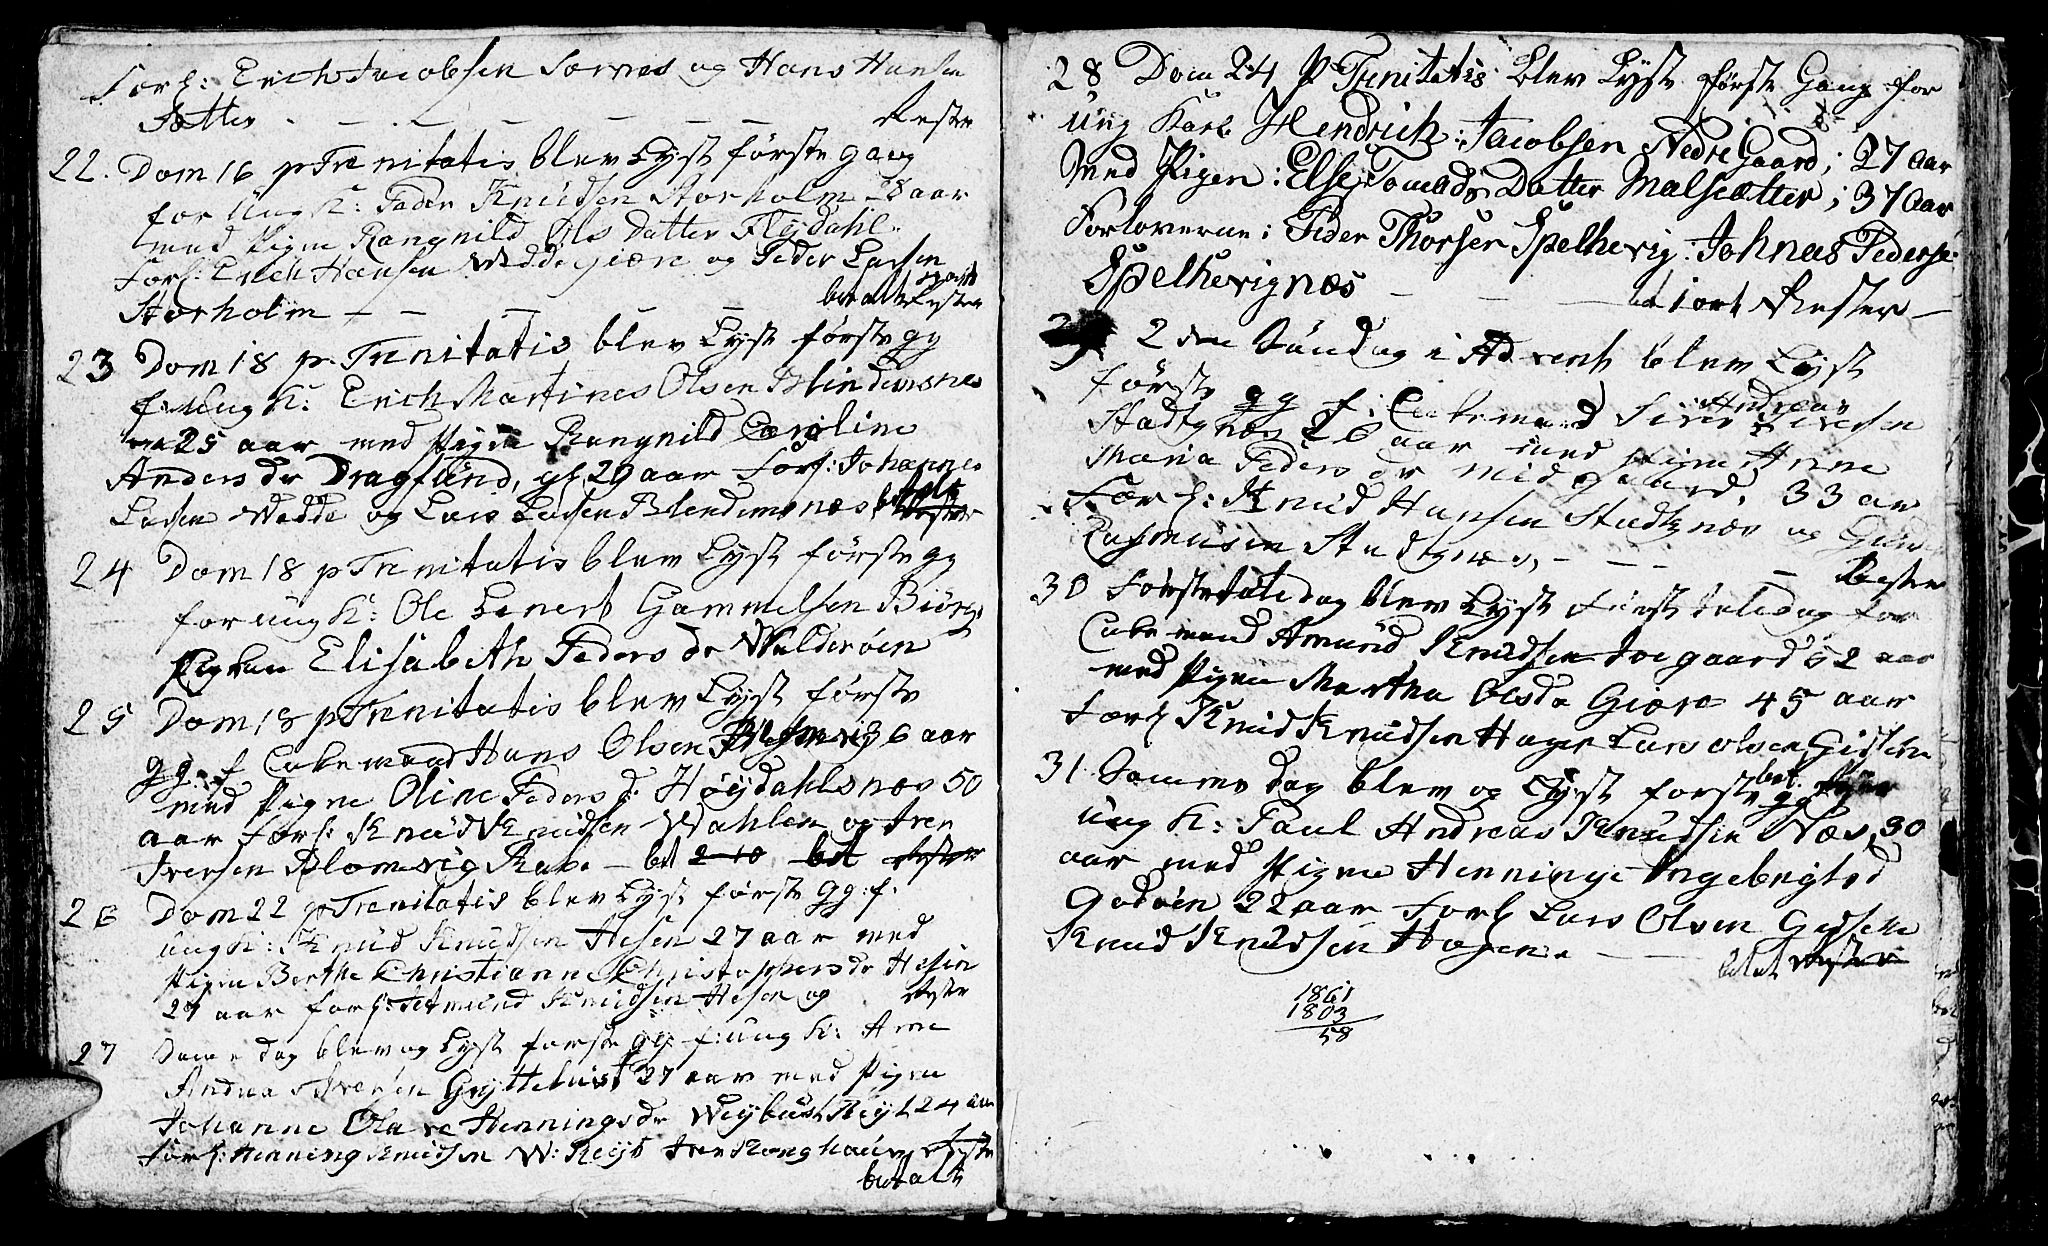 Forl: Erich Jacobsen Sørnes og Hans Hansen
Sætter - - - - - - Rester
22. Dom 16 p Trenitatis blev Lyst første gang
for Ung K: Peder Knudsen Storholm 28 aar
med Pigen Rangnild Ols Datter Flydahl
Forl: Erich Hansen Wedde Giøre og Peder Larsen
Storholm - - - - betalt Rester
23 Dom 18 p. Trenitatis blev Lyst første gg
f: Ung K: Erich Martines Olsen Blindemsnes
25 aar med Pigen Rangnild Caroline
Anders dr Dragsund, gl 29 aar Forl: Johannes
Larsen Wedde og Lars Larsen Blendemsnæs betalt Rester
24 Dom 18 p Trenitatis blev Lyst første gg
for ung K: Ole Lenert Gammelsen Biørge
Pigken Elisabeth Peders dr Walderøen
25 Dom 18 p Trenitatis blev Lyst første
gg. f Enkemand Hans Olsen 36 aar
med Pigen Oline Peders dr Høydahlsnæs 50
aar Forl: Knud Knudsen Wahlen og Iver
Iversen Blomvig - bet 2-10 bet Rester
26 Dom 22 p Trenitatis blev Lyst første gg: f.
ung K: Knud Knudsen Hesen 27 aar med
Pigen Berthe Christianne Christophersdr Hesen
27 aar forl: Amund Knudsen Hesen og Rester
27 Samme dag blev og Lyst første gg f: ung K: Arne
Andreas Iversen Gryttelvist 27 aar med Pigen
Johanne Olave Henningsdr Weybust Røyt 24 aar
Forl: Henning Knudsen W: Røyt Iver Ronghaug Rester
betalt
28 Dom 24 p Trenitatis Blev Lyst første Gang for
Ung Karl Hendrich: Jacobsen Nedre Gaard; 27 Aar
Med Pigen: Else Tomads Datter Malsætter; 37 Aar
Forloverne: Peder Thorsen Spelhevig: Johnas Pederse:
Spelhevignæs - - - bet 1 ort Rester -
29 2 den Søndag i Advent blev Lyst
første gg f: Enkemand Siver Andreas Siversen
Stadtgnæs 26 aar med Pigen Anne
Maria Peders dr Midgaard, 33 aar
Forl: Knud Hansen Stadtgnæs og
Rasmusen Stadtgnæs, - - - - Rester
30 Første Juledag blev Lyst Første Juledag for
Enkemand Amund Knudsen Indegaard 52 aar
med Pigen Martha Olsdr Giøre 45 aar
Forl Knud Knudsen Hagen Lars Olsen Gidsken
31 Samme dag blev og Lyst første gg bet
ung K: Paul Andreas Knudsen Næs, 30
aar med Pigen Henninge Ingebrigtsd
Godøen 22 aar Forl Lars Olsen Gidsken
Knud Knudsen Hagen. - - betalt Rester
1861
1803
58